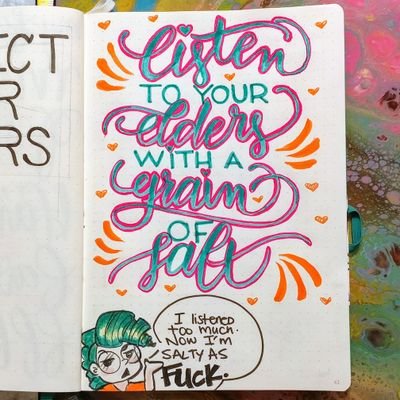 ECT
R
RS
listen
TO YOUR
elders
WITH A
grain
OF
salt
I listened
too much.
Now I'm
SALTY AS
FUCK.